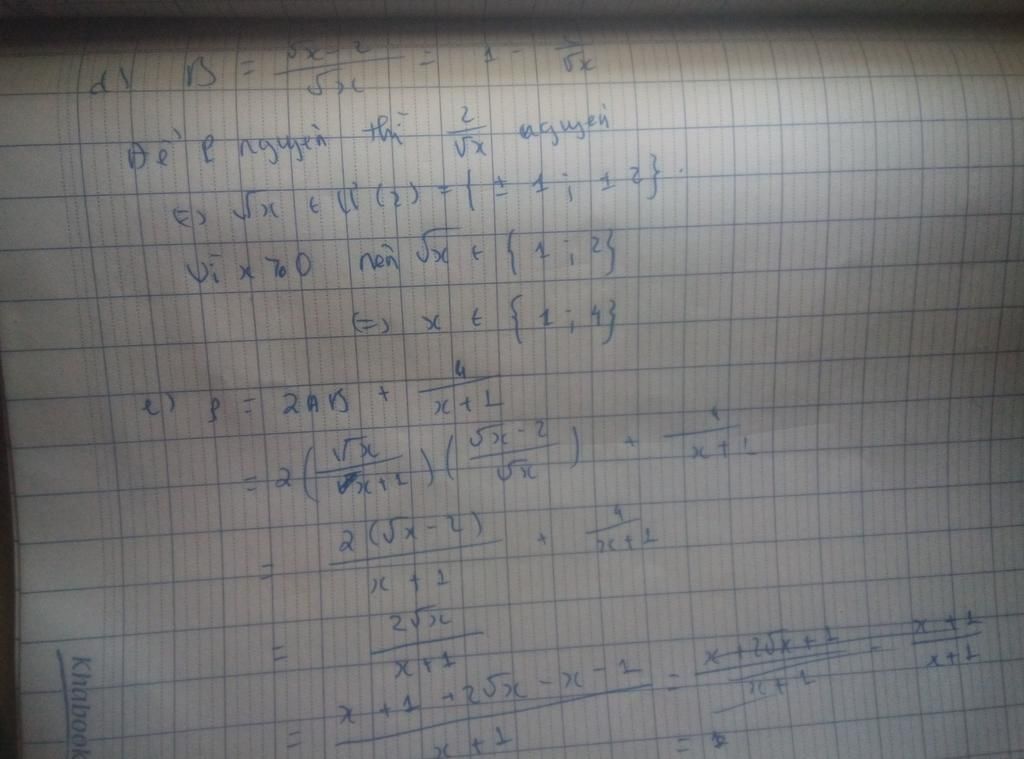 d) B = \frac{\sqrt{x} - 2}{\sqrt{x}} = 1 - \frac{2}{\sqrt{x}}
Để P nguyên thì \frac{2}{\sqrt{x}} nguyên
<=> \sqrt{x} ∈ Ư(2) = { ± 1 ; ± 2 } .
Vì x ≥ 0 nên \sqrt{x} ∈ { 1 ; 2 }
<=> x ∈ { 1 ; 4 }
e) P = 2AB + \frac{4}{x + 1}
= 2 ( \frac{\sqrt{x}}{x + 1} ) ( \frac{\sqrt{x} - 2}{\sqrt{x}} ) + \frac{4}{x + 1}
= \frac{2 (\sqrt{x} - 2)}{x + 1} + \frac{4}{x + 1}
= \frac{2\sqrt{x}}{x + 1}
= \frac{x + 1 + 2\sqrt{x} - x - 1}{x + 1} = \frac{x + 2\sqrt{x} + 1}{x + 1} - \frac{x + 1}{x + 1}
Khabook